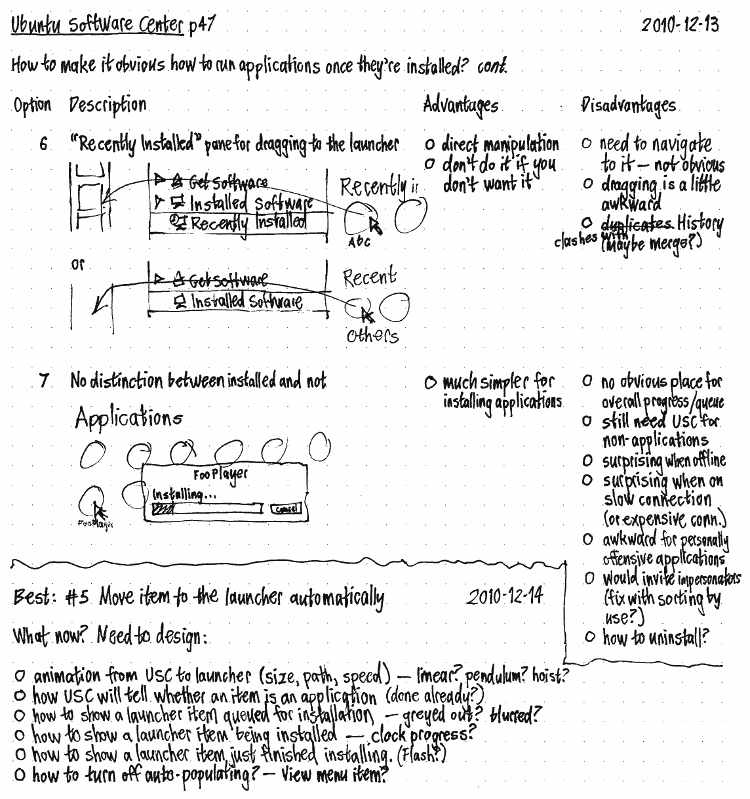 Ubuntu Software Center p47
2010-12-13
How to make it obvious how to run applications once they're installed? cont.
Option Description Advantages Disadvantages
6 "Recently Installed" pane for dragging to the launcher
Get Software
Installed Software
Recently Installed
Recently i
Abc
or
Get Software
Installed Software
Recent
Others
direct manipulation
don't do it if you
don't want it
need to navigate
to it – not obvious
dragging is a little
awkward
duplicates History
clashes with
(Maybe merge?)
7 No distinction between installed and not
Applications
FooPlayer
Installing...
Cancel
FooPlayer
much simpler for
installing applications
no obvious place for
overall progress/queue
still need USC for
non-applications
surprising when offline
surprising when on
slow connection
(or expensive conn.)
awkward for personally
offensive applications
would invite impersonators
(fix with sorting by
use?)
how to uninstall?
Best: #5 Move item to the launcher automatically 2010-12-14
What now? Need to design:
animation from USC to launcher (size, path, speed) – linear? pendulum? hoist?
how USC will tell whether an item is an application (done already?)
how to show a launcher item queued for installation – greyed out? blurred?
how to show a launcher item being installed – clock progress?
how to show a launcher item just finished installing. (Flash?)
how to turn off auto-populating? – View menu item?